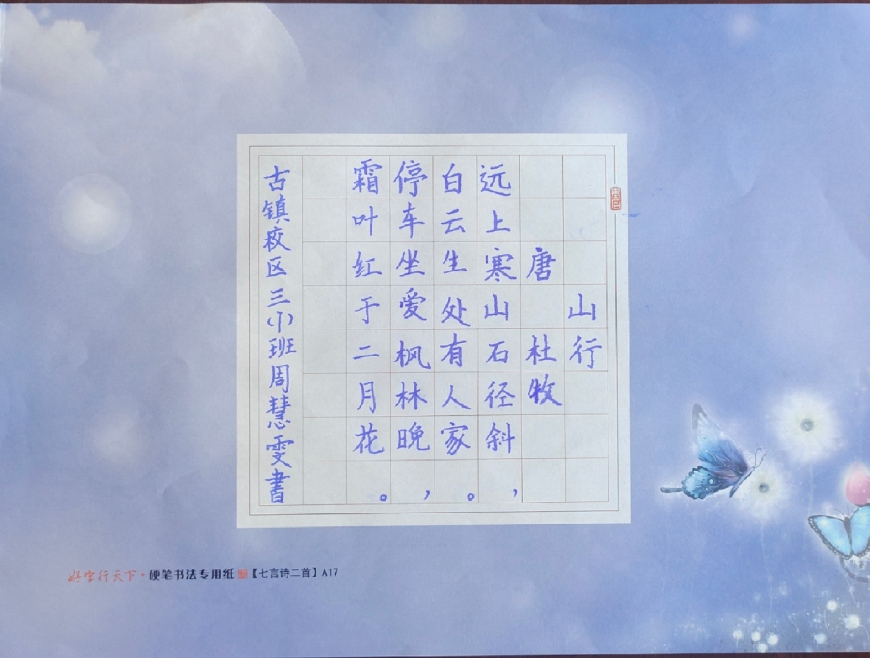 山行
唐 杜牧
远上寒山石径斜，
白云生处有人家。
停车坐爱枫林晚，
霜叶红于二月花。
古镇校区三(1)班周慧雯書
好字行天下·硬笔书法专用纸【七言诗二首】A17